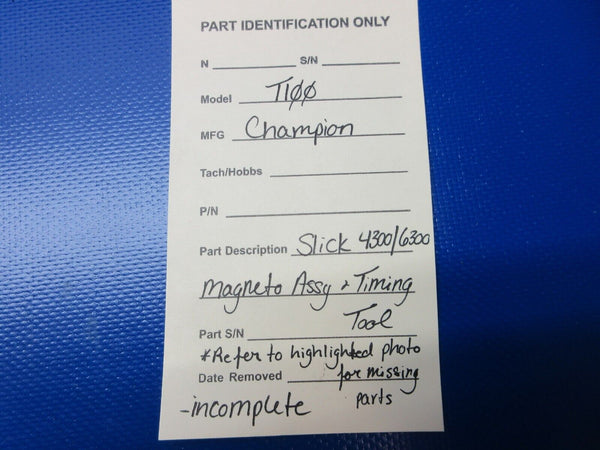 PART IDENTIFICATION ONLY
N S/N
Model T100
MFG Champion
Tach/Hobbs
P/N
Part Description Slick 4300/6300
Magneto Assy & Timing
Tool
Part S/N
*Refer to highlighted photo
Date Removed for missing
-incomplete parts